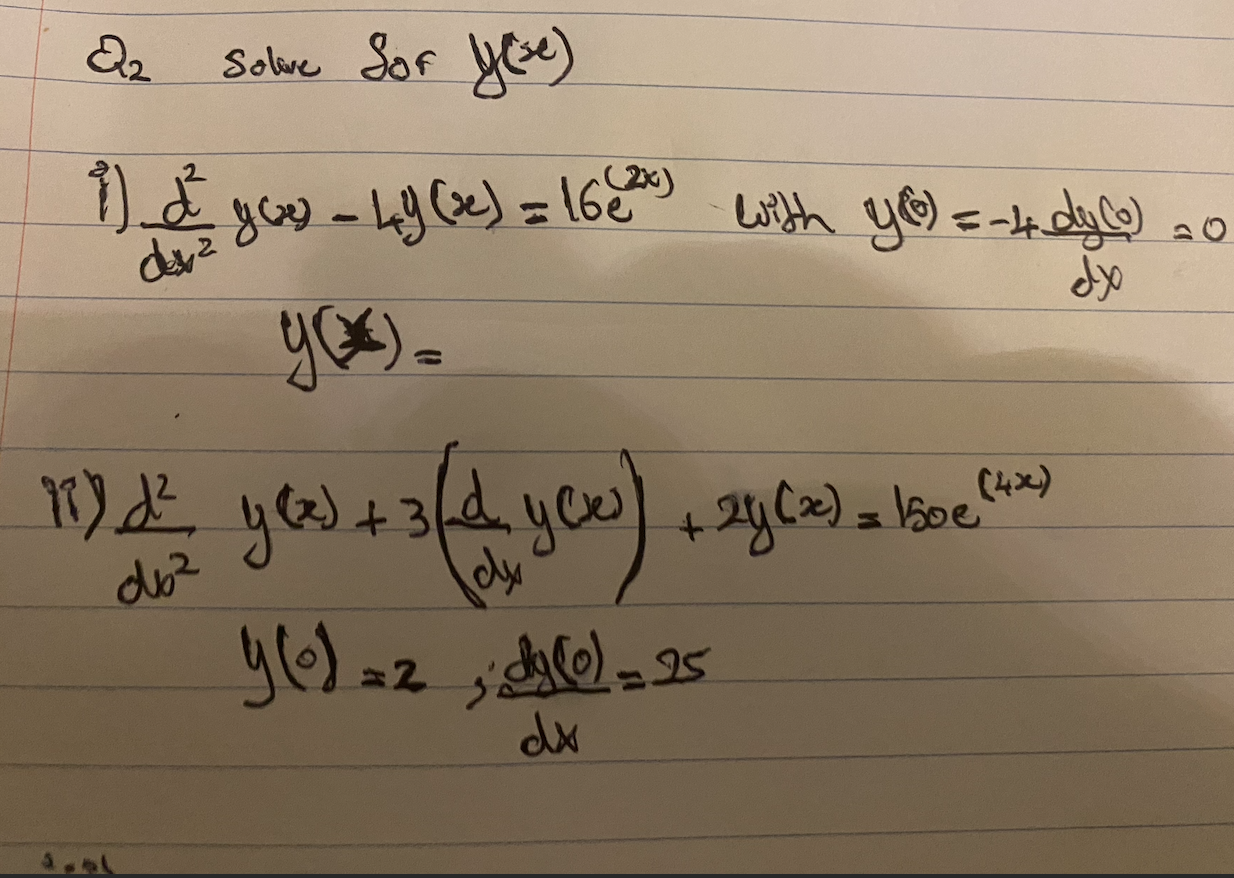 Q2 Solve for y(x)
i) d²/dx² y(x) - 4y(x) = 16e^(2x) with y(0) = -4 dy(0)/dx = 0
y(x) =
ii) d²/dx² y(x) + 3(d/dx y(x)) + 2y(x) = 150e^(4x)
y(0) = 2 ; dy(0)/dx = 25